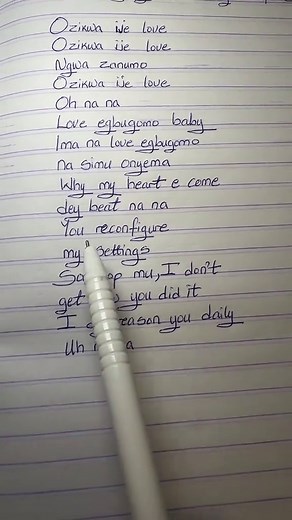 Ozikwa ije love
Ozikwa ije love
Ngwa zanumo
Ozikwa ije love
Oh na na
Love egbugomo baby
Ima na love egbugomo
na simu onyema
Why my heart e come
dey beat na na
You reconfigure
my settings
mu, I don't
get you did it
I reason you daily
Uh